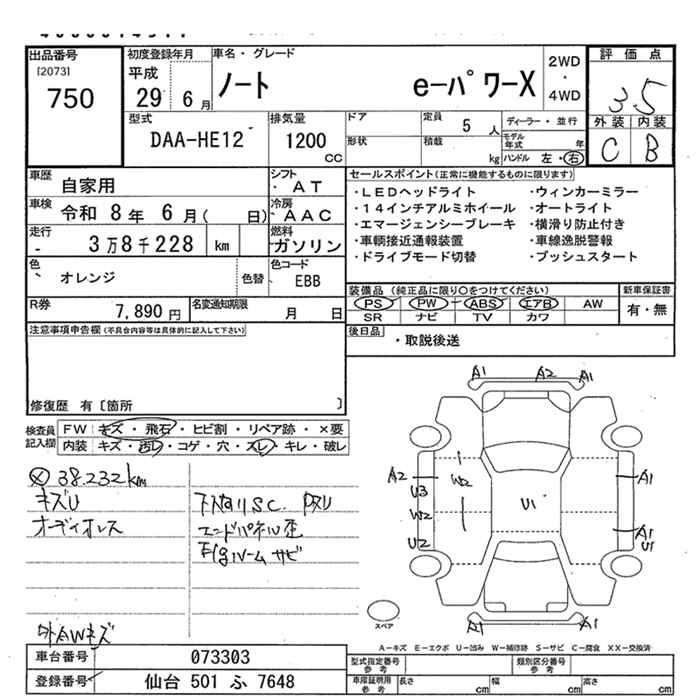 出品番号
[2073]
750
初度登録年月
平成
29 6 月
車名・グレード
ノート e-パワーX
2WD
・
4WD
評価点
3.5
外装 内装
C B
型式
DAA-HE12
排気量
1200
cc
ドア
形状
定員 5 人
積載 kg
ディーラー・並行
モデル年式 年
ハンドル 左・右
車歴
自家用
シフト
・AT
車検
令和 8 年 6 月( 日)
冷房
・AAC
走行
3 万 8 千 228 km
燃料
ガソリン
色
オレンジ
色替
色コード
EBB
R券
7,890 円
名変通知期限
月 日
セールスポイント(正常に機能するものに限ります)
・LEDヘッドライト ・ウィンカーミラー
・14インチアルミホイール ・オートライト
・エマージェンシーブレーキ ・横滑り防止付き
・車輌接近通報装置 ・車線逸脱警報
・ドライブモード切替 ・プッシュスタート
装備品(純正品に限り○をつけてください)
PS PW ABS エアB AW
SR ナビ TV カワ
新車保証書
有・無
後日品
・取説後送
注意事項申告欄(不具合内容等は具体的に記入して下さい)
修復歴 有〔箇所 〕
検査員記入欄
FW キズ・飛石・ヒビ割・リペア跡・×要
内装 キズ・汚レ・コゲ・穴・スレ・キレ・破レ
38.232km
キズU
オーディオレス
エンドパネル歪
サビ
外AWキズ
A1 A2 A1
A2
U3
W2
W2
U2
U1
A1
A1
U1
A1 A1
スペア
A-キズ E-エクボ U-凹み W-補修跡 S-サビ C-腐食 XX-交換済
車台番号 073303
登録番号 仙台 501 ふ 7648
型式指定番号 参考
類別区分番号 参考
車庫証明用 参考
長さ cm 幅 cm 高さ cm